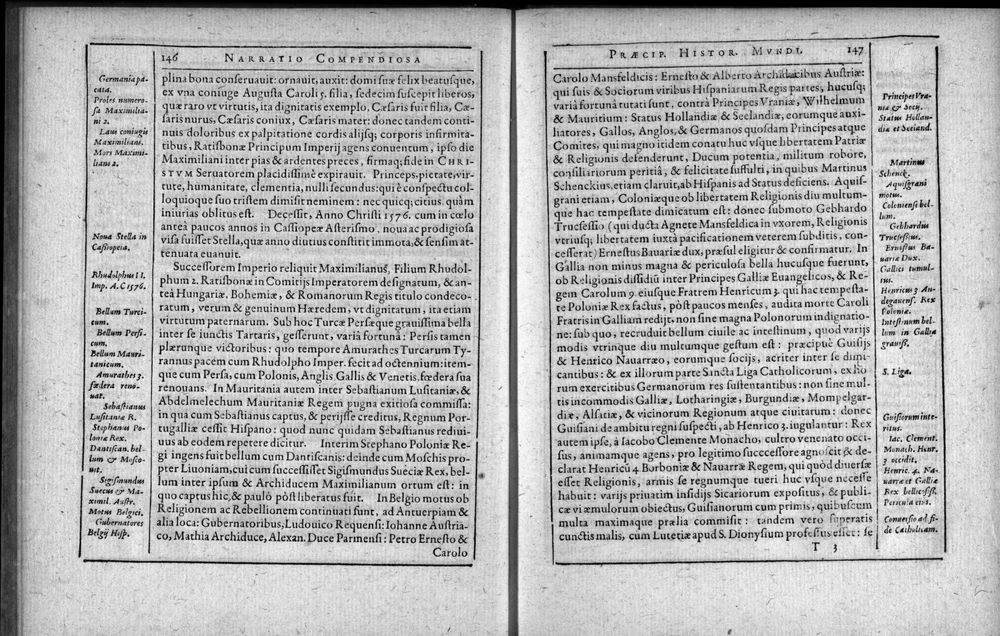 146 NARRATIO COMPENDIOSA
Germania pa-
cata.
Proles numero-
sa Maximilia-
ni 2.
Laus coniugis
Maximiliani.
Mors Maximi-
liani 2.
Noua Stella in
Cassiopeia.
Rhudolphus II.
Imp. A. C 1576.
Bellum Turci-
cum.
Bellum Persi-
cum.
Bellum Mauri-
tanicum.
Amurathes 3.
fœdera reno-
uat.
Sebastianus
Lusitaniæ R.
Stephanus Po-
loniæ Rex.
Dantiscan. bel-
lum & Mosco-
uit.
Sigismundus
Suecus & Ma-
ximil. Austr.
Motus Belgici.
Gubernatores
Belgij Hisp.
plina bona conseruauit: ornauit, auxit: domi suæ felix beatusque,
ex vna coniuge Augusta Caroli 5. filia, sedecim suscepit liberos,
quæ raro vt virtutis, ita dignitatis exemplo, Cæsaris fuit filia, Cæ-
saris nurus, Cæsaris coniux, Cæsaris mater: donec tandem conti-
nuis doloribus ex palpitatione cordis alijsq; corporis infirmita-
tibus, Ratisbonæ Principum Imperij agens conuentum, ipso die
Maximiliani inter pias & ardentes preces, firmaq; fide in CHRI-
STVM Seruatorem placidissimè expirauit. Princeps, pietate, vir-
tute, humanitate, clementia, nulli secundus: qui è conspectu col-
loquioque suo tristem dimisit neminem: nec quicq; citius quàm
iniurias oblitus est. Decessit, Anno Christi 1576. cum in cœlo
anteà paucos annos in Cassiopeæ Asterismo, noua ac prodigiosa
visa fuisset Stella, quæ anno diutius constitit immota, & sensim at-
tenuata euanuit.
Successorem Imperio reliquit Maximilianus, Filium Rhudol-
phum 2. Ratisbonæ in Comitijs Imperatorem designatum, & an-
teà Hungariæ, Bohemiæ, & Romanorum Regis titulo condeco-
ratum, verum & genuinum Hæredem, vt dignitatum, ita etiam
virtutum paternarum. Sub hoc Turcæ Persæque grauissima bella
inter se iunctis Tartaris, gesserunt, variâ fortunâ: Persis tamen
plærunque victoribus: quo tempore Amurathes Turcarum Ty-
rannus pacem cum Rhudolpho Imper. fecit ad octennium: item-
que cum Persa, cum Polonis, Anglis Gallis & Venetis. fœdera sua
renouans. In Mauritania autem inter Sebastianum Lusitaniæ, &
Abdelmelechum Mauritaniæ Regem pugna exitiosa commissa:
in qua cum Sebastianus captus, & perijsse creditus, Regnum Por-
tugalliæ cessit Hispano: quod nunc quidam Sebastianus rediui-
uus ab eodem repetere dicitur. Interim Stephano Poloniæ Re-
gi ingens fuit bellum cum Dantiscanis: deinde cum Moschis pro-
pter Liuoniam, cui cum successisset Sigismundus Sueciæ Rex, bel-
lum inter ipsum & Archiducem Maximilianum ortum est: in
quo captus hic, & paulò pòst liberatus fuit. In Belgio motus ob
Religionem ac Rebellionem continuati sunt, ad Antuerpiam &
alia loca: Gubernatoribus, Ludouico Requensi: Iohanne Austria-
co, Mathia Archiduce, Alexan. Duce Parmensi: Petro Ernesto &
Carolo
PRÆCIP. HISTOR. MVNDI. 147
Carolo Mansfeldicis: Ernesto & Alberto Archiducibus Austriæ:
qui suis & Sociorum viribus Hispaniarum Regis partes, hucusq;
variâ fortunâ tutati sunt, contrà Principes Vraniæ, Wilhelmum
& Mauritium: Status Hollandiæ & Seelandiæ, eorumque auxi-
liatores, Gallos, Anglos, & Germanos quosdam Principes atque
Comites, qui magno itidem conatu huc vsque libertatem Patriæ
& Religionis defenderunt, Ducum potentia, militum robore,
consiliariorum peritiâ, & felicitate suffulti, in quibus Martinus
Schenckius, etiam claruit, ab Hispanis ad Status deficiens. Aquis-
grani etiam, Coloniæque ob libertatem Religionis diu multum-
que hac tempestate dimicatum est: donec submoto Gebhardo
Trucsessio (qui ducta Agnete Mansfeldica in vxorem, Religionis
vtriusq; libertatem iuxtà pacificationem veterem subditis, con-
cesserat) Ernestus Bauariæ dux, præsul eligitur & confirmatur. In
Gallia non minus magna & periculosa bella hucusque fuerunt,
ob Religionis dissidiû inter Principes Galliæ Euangelicos, & Re-
gem Carolum 9. eiusque Fratrem Henricum 3. qui hac tempesta-
te Poloniæ Rex factus, pòst paucos menses, audita morte Caroli
Fratris in Galliam redijt, non sine magna Polonorum indignatio-
ne: sub quo, recruduit bellum ciuile ac intestinum, quod varijs
modis vtrinque diu multumque gestum est: præcipuè Guisijs
& Henrico Nauarræo, eorumque socijs, acriter inter se dimi-
cantibus: & ex illorum parte Sancta Liga Catholicorum, ex ho-
rum exercitibus Germanorum res sustentantibus: non sine mul-
tis incommodis Galliæ, Lotharingiæ, Burgundiæ, Mompelgar-
diæ, Alsatiæ, & vicinorum Regionum atque ciuitatum: donec
Guisiani de ambitu regni suspecti, ab Henrico 3. iugulantur: Rex
autem ipse, à Iacobo Clemente Monacho, cultro venenato occi-
sus, animamque agens, pro legitimo succcessore agnoscit & de-
clarat Henricû 4 Borboniæ & Nauarræ Regem, qui quòd diuersæ
esset Religionis, armis se regnumque tueri huc vsque necesse
habuit: varijs priuatim insidijs Sicariorum expositus, & publi-
cæ vi æmulorum obiectus, Guisianorum cum primis, quibuscum
multa maximaque prælia commisit: tandem verò superatis
cunctis malis, cum Lutetiæ apud S. Dionysium professus esset: se
T 3
Principes Vra-
niæ & Socij.
Status Hollan-
diæ et Seeland.
Martinus
Schenck.
Aquisgrani
motus.
Coloniense bel-
lum.
Gebhardus
Trucsessius.
Ernestus Ba-
uariæ Dux.
Gallici tumul-
tus.
Henricus 3 An-
degauens. Rex
Poloniæ.
Intestinum bel-
lum in Gallia
grauiss.
S. Liga.
Guisiorum inte-
ritus.
Iac. Clement.
Monach. Henr.
3 occidit.
Henric. 4. Na-
uaræ et Galliæ
Rex bellicosiss.
Pericula eius.
Conuersio ad fi-
dē Catholicam.